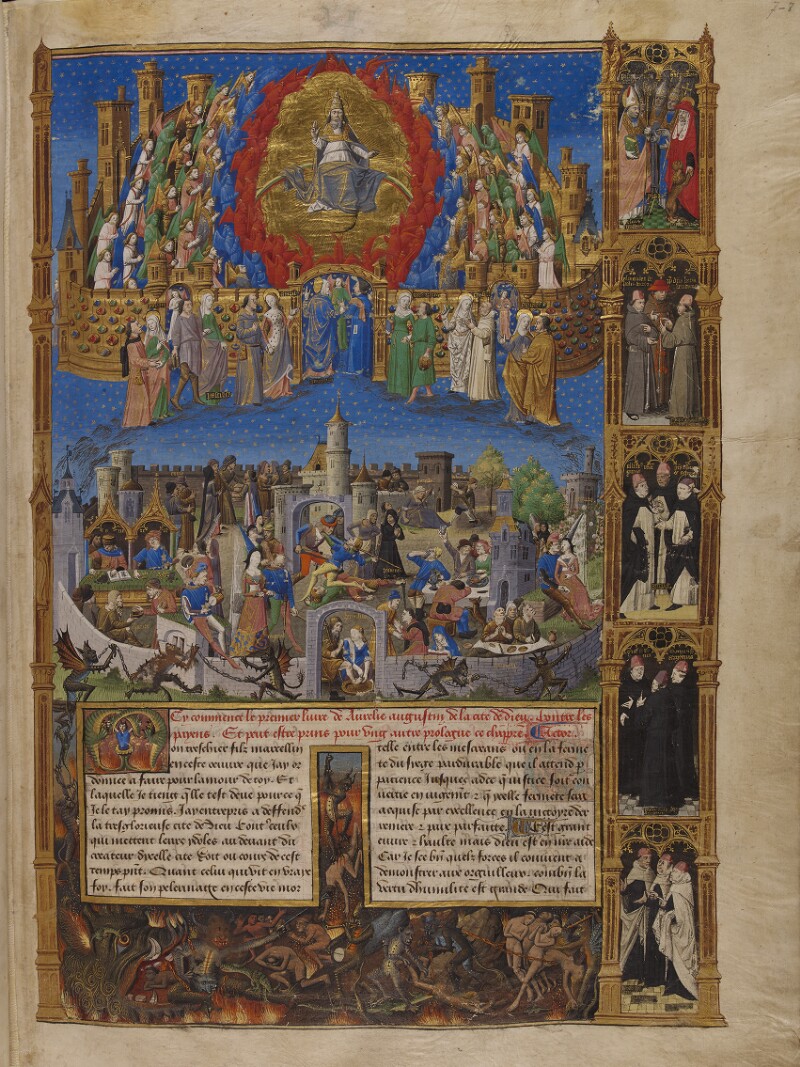 Cy commence le premier liure de Aurelie augustin de la cite de dieu. Contre les
payens. Et peut estre prins pour ung autre prologue ce chappre. Acteor.
on treschier filz marcellin
en ceste oeuure que Jay or
donnee a faire pour lamour de toy. Et
laquelle Je tiens qlle test deue pource q
Je le tay promis. Jay entrepris a deffendre
la tresglorieuse cite de Dieu Contre ceulx
qui mettent leurs ydoles au deuant du
createur dicelle cite Soit ou cours de cest
temps pnt. Quant celui qui vit en vraye
foy. fait son pelerinaige en ceste vie mor
telle entre les mescreans ou en la ferme
te du siege pardurable que il attend p
pacience Jusques adce que iustice soit con
uertie en iugement & q icelle fermete sera
acquise par excellence en la victoyre der
reniere & paix parfaitte. C'est grant
euure & haulte mais dieu est en mon aide
Car Je sce bn quelz forces il conuient a
demonstrer aux orguilleux. combien la
vertu dhumilite est grande Qui fait